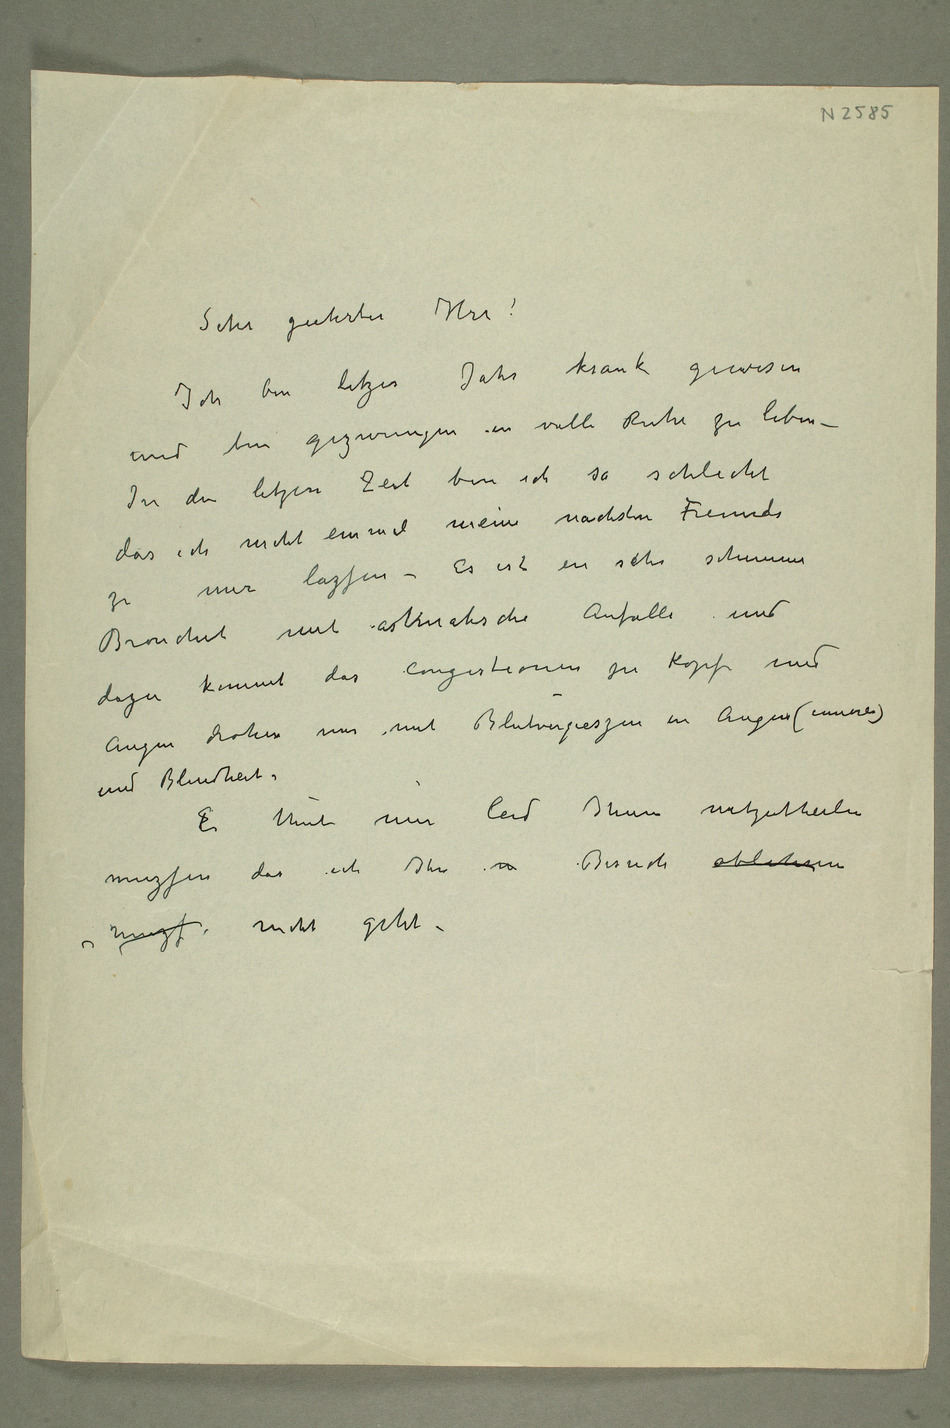 N 2585
Sehr geehrter Herr!
Ich bin letzes Jahr krank gewesen
und bin gezwungen in volle Ruhe zu leben –
In den letzen Zeit bin ich so schlecht
das ich nicht einmal meine nachsten Freunds
zu mir lazsen – Es ist ein sehr schimme
Bronchit mit astmatische Anfalle und
dazu kommt das Congestionen zu Kopf und
Augen drohen mir mit Blutvergieszen in Augen (inneres)
und Blindheit.
Es thut mir leid Ihnen mitzutheilen
muzsen das ich Ihr n Besuch ablehnen
muzs. nicht geht –